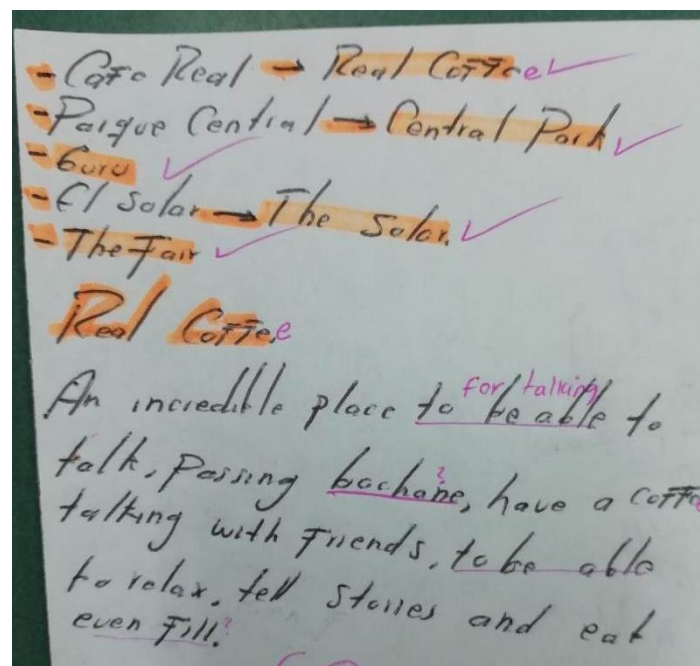 - Cafe Real → Real Coffee ✓
- Parque Central → Central Park ✓
- Guru ✓
- El Solar → The Solar. ✓
- The Fair ✓
Real Coffee
for talking
An incredible place to be able to
talk, Passing bachane, have a Coffe
?
talking with Friends, to be able
to relax, tell Stories and eat
even Fill. ?